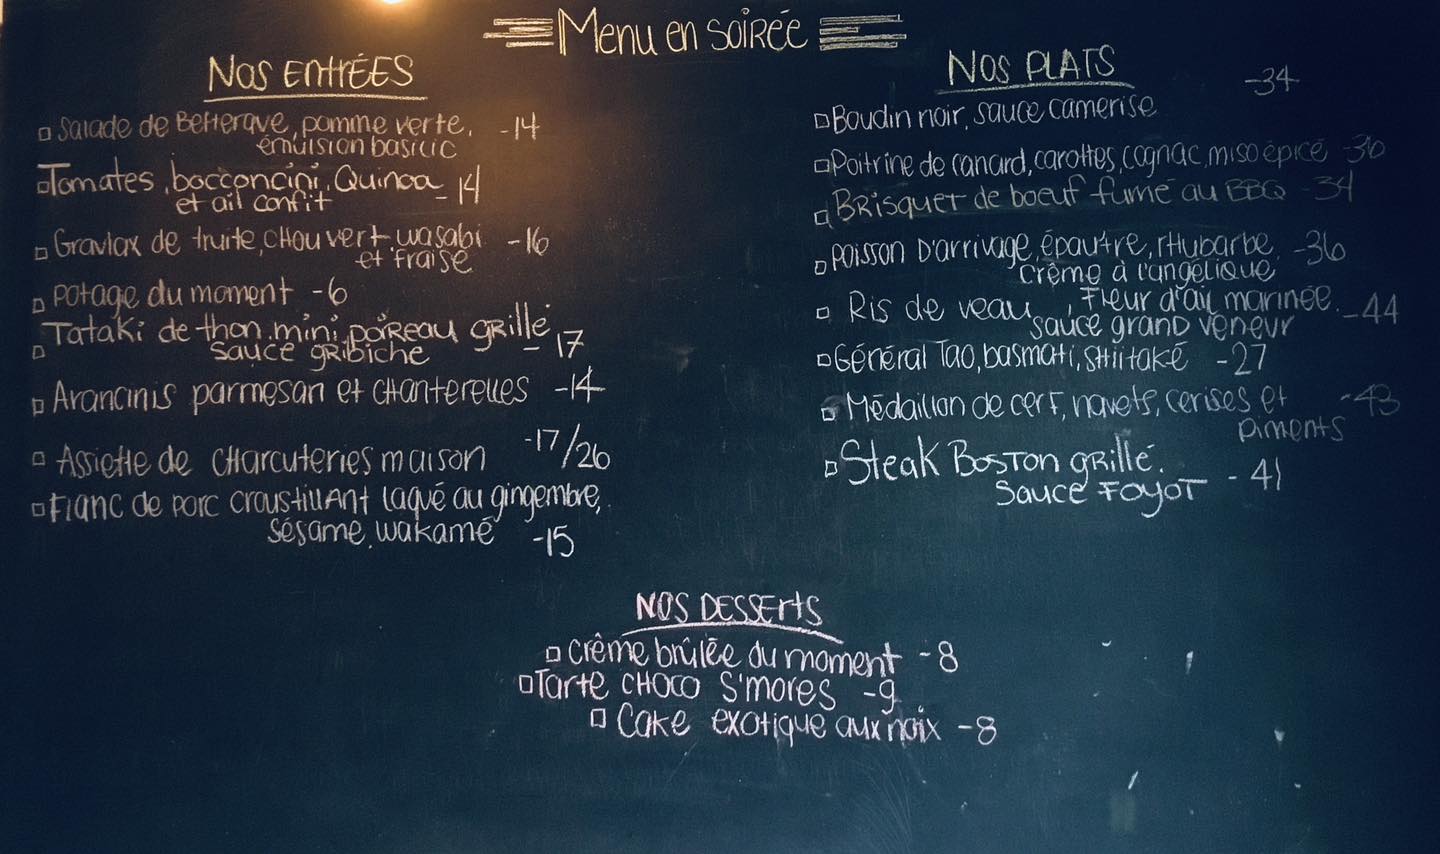 Menu en soirée
NOS ENTRÉES
Salade de Betterave, pomme verte, -14
émulsion basilic
Tomates, bocconcini, Quinoa
et ail confit -14
Gravlax de truite, chou vert, wasabi -16
et fraise
Potage du moment -6
Tataki de thon, mini poireau grillé,
sauce gribiche -17
Arancinis parmesan et chanterelles -14
Assiette de charcuteries maison -17/26
Flanc de porc croustillant laqué au gingembre,
sésame, wakamé -15
NOS PLATS
-34
Boudin noir, sauce camerise
Poitrine de canard, carottes, cognac, miso épicé -36
Brisquet de boeuf fumé au BBQ -34
Poisson d'arrivage, épautre, rhubarbe, -36
crème à l'angélique
Ris de veau, Fleur d'ail marinée, -44
sauce grand veneur
Général Tao, basmati, shiitaké -27
Médaillon de cerf, navets, cerises et -43
piments
Steak Boston grillé,
Sauce Foyot -41
NOS DESSERTS
Crème brûlée du moment -8
Tarte choco S'mores -9
Cake exotique aux noix -8